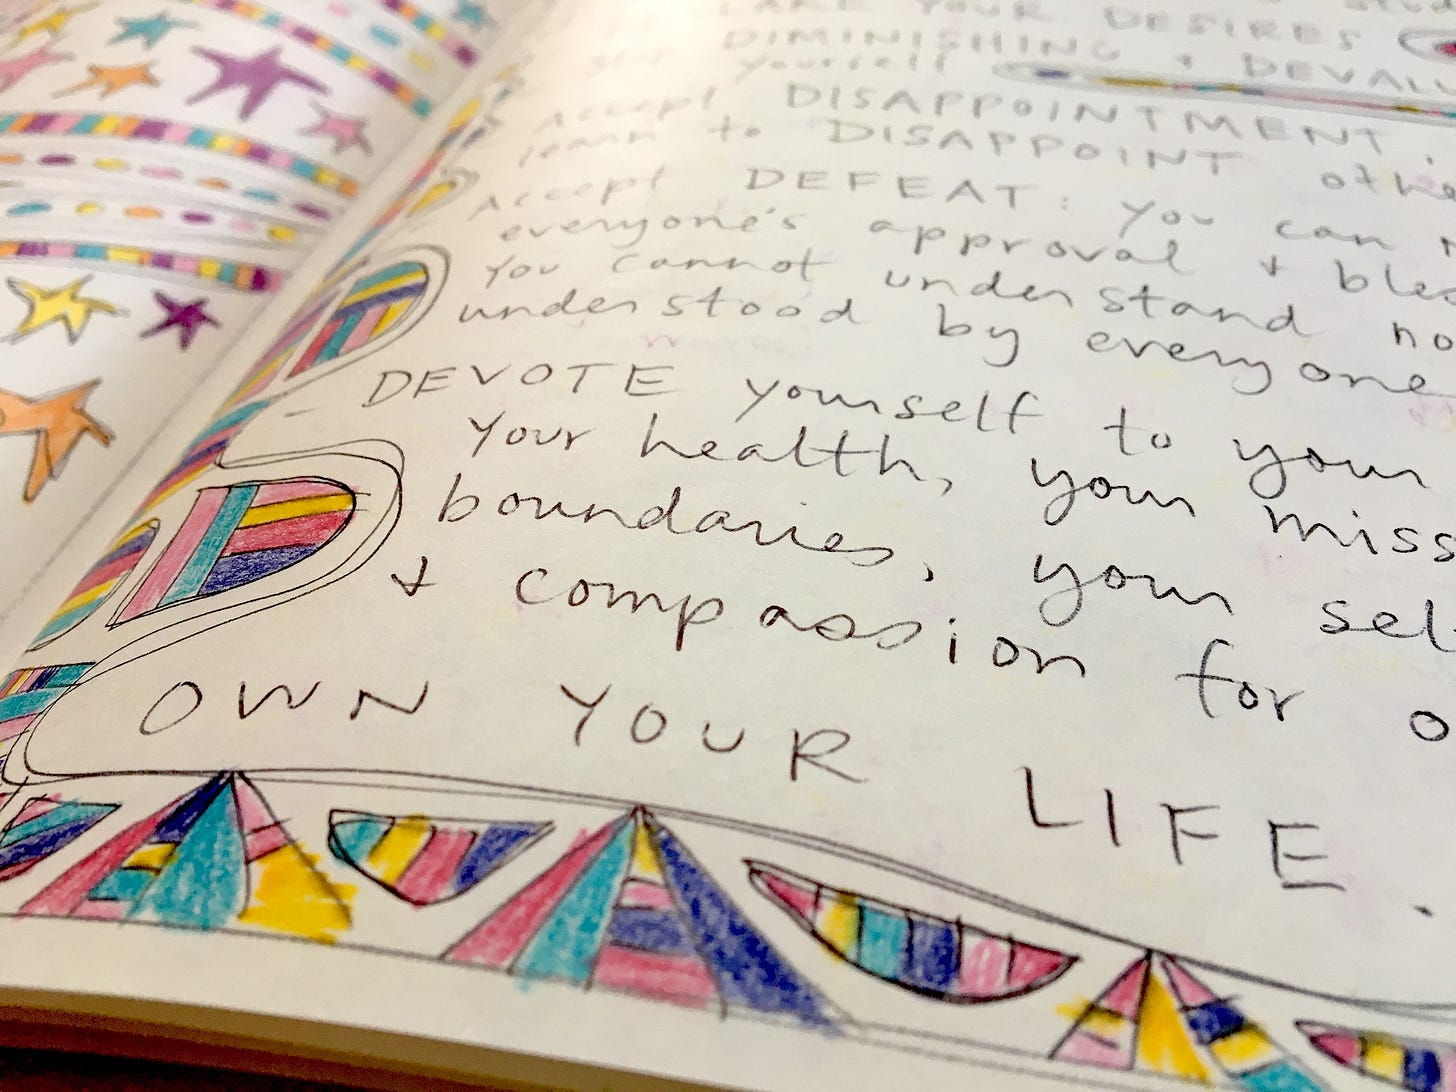 YOUR DESIRES
DIMINISHING +
yourself
Accept DISAPPOINTMENT.
learn to DISAPPOINT
Accept DEFEAT: You can
everyone's approval +
You cannot understand
understood by everyone
- DEVOTE yourself to your
Your health, your
boundaries, your
+ compassion for
OWN YOUR LIFE.